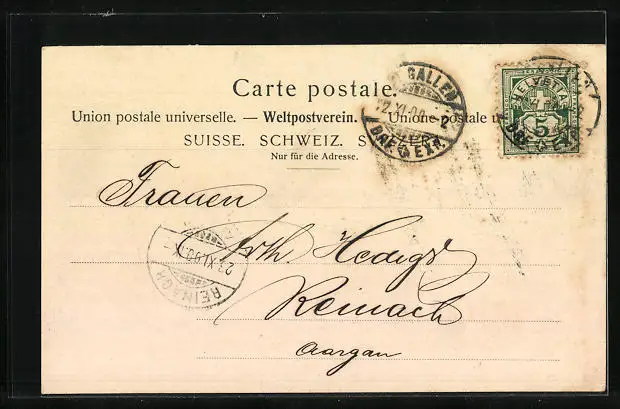 Carte postale.
Union postale universelle. — Weltpostverein. — Unione postale u
SUISSE. SCHWEIZ. S
Nur für die Adresse.
GALLEN
22.XI.00.-2
BRF. EXP.
HELVETIA
5
Frauen
Hedigr
Reinach
Aargau
REINACH
23.XI.00.